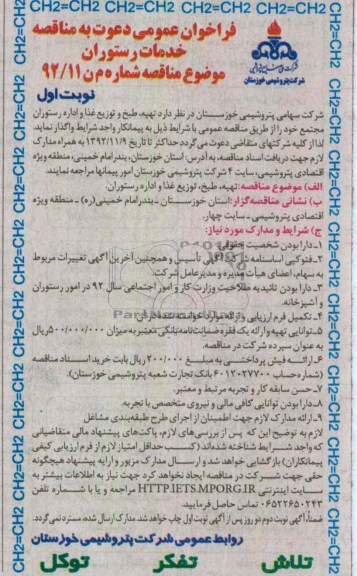 فراخوان عمومی دعوت به مناقصه
خدمات رستوران
موضوع مناقصه شماره م ن ۹۲/۱۱
شرکت پتروشیمی خوزستان
نوبت اول
شرکت سهامی پتروشیمی خوزستان در نظر دارد تهیه، طبخ و توزیع غذا و اداره رستوران
مجتمع خود را از طریق مناقصه عمومی با شرایط ذیل به پیمانکار واجد شرایط واگذار نماید.
لذا از کلیه شرکتهای متقاضی دعوت می گردد حداکثر تا تاریخ ۱۳۹۲/۱۱/۹ به همراه مدارک
لازم جهت دریافت اسناد مناقصه، به آدرس: استان خوزستان، بندرامام خمینی، منطقه ویژه
اقتصادی پتروشیمی، سایت ۴ شرکت پتروشیمی خوزستان امور پیمانها مراجعه نمایند.
الف) موضوع مناقصه: تهیه، طبخ، توزیع غذا و اداره رستوران.
ب) نشانی مناقصه گزار: استان خوزستان - بندرامام خمینی (ره) - منطقه ویژه
اقتصادی پتروشیمی - سایت چهار.
ج) شرایط و مدارک مورد نیاز:
۱- دارا بودن شخصیت حقوقی
۲- فتوکپی اساسنامه شرکت، آگهی تأسیس و همچنین آخرین آگهی تغییرات مربوط
به سهام، اعضای هیأت مدیره و مدیرعامل شرکت.
۳- دارا بودن تائیدیه صلاحیت وزارت کار و امور اجتماعی سال ۹۲ در امور رستوران
و آشپزخانه.
۴- تکمیل فرم ارزیابی و ارائه موارد خواسته شده
۵- توانایی تهیه و ارائه یک فقره ضمانت نامه بانکی معتبر به میزان ۵۰۰/۰۰۰/۰۰۰ ریال
به عنوان سپرده شرکت در مناقصه.
۶- ارائه فیش پرداختی به مبلغ ۲۰۰/۰۰۰ ریال بابت خرید اسناد مناقصه
(شماره حساب ۶۰۱۲۰۲۷۷۰۰ بانک تجارت شعبه پتروشیمی خوزستان).
۷- حسن سابقه کار و تجربه مرتبط و معتبر.
۸- دارا بودن توانایی کافی مالی و نیروی متخصص با تجربه
۹- ارائه مدارک لازم جهت اطمینان از اجرای طرح طبقه بندی مشاغل
لازم به توضیح این که پس از بررسی های لازم، پاکت های پیشنهاد مالی متقاضیانی
که واجد شرایط شناخته شده اند (کسب حداقل امتیاز لازم از فرم ارزیابی کیفی
پیمانکاران) بازگشایی خواهد شد و ارسال مدارک مزبور و ارایه پیشنهاد هیچگونه
حقی جهت شرکت در مناقصه ایجاد نخواهد کرد جهت نیاز به اطلاعات بیشتر به
سایت اینترنتی HTTP.IETS.MPORG.IR مراجعه و یا با شماره تلفن
۰۶۵۲۲۶۵۰۲۴۳ تماس حاصل فرمایید.
ضمناً، آگهی نوبت دوم دو روز پس از آگهی نوبت اول چاپ خواهد شد. مدارک ارسال شده، مسترد نمی گردد.
روابط عمومی شرکت پتروشیمی خوزستان
تلاش تفکر توکل
CH2=CH2 CH2=CH2 CH2=CH2 CH2=CH2 CH2=CH2